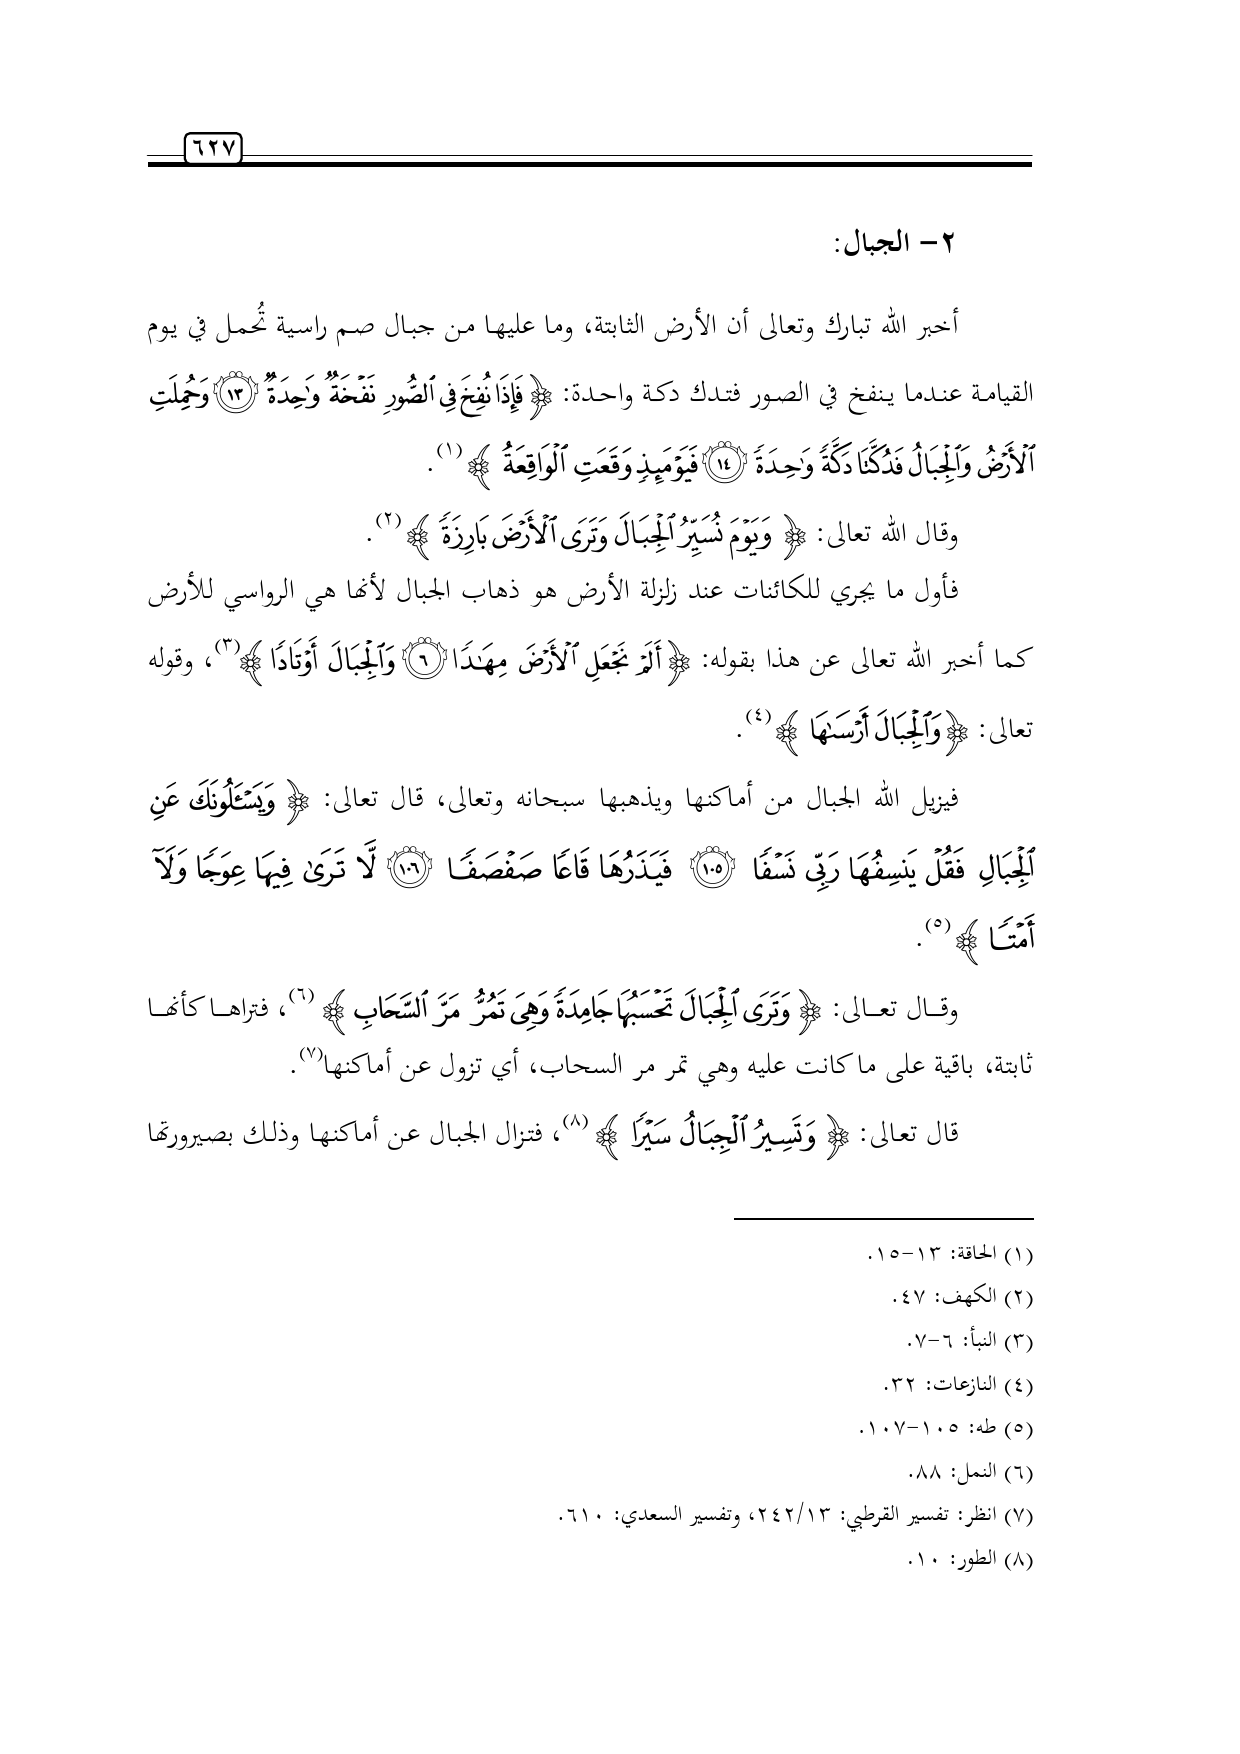 ٦٢٧
٢- الجبال:
أخبر الله تبارك وتعالى أن الأرض الثابتة، وما عليها من جبال صم راسية تُحمل في يوم
القيامة عندما ينفخ في الصور فتدك دكة واحدة: ﴿ فَإِذَا نُفِخَ فِي ٱلصُّورِ نَفْخَةٌ وَٰحِدَةٌ ١٣ وَحُمِلَتِ
ٱلْأَرْضُ وَٱلْجِبَالُ فَدُكَّتَا دَكَّةً وَٰحِدَةً ١٤ فَيَوْمَئِذٍ وَقَعَتِ ٱلْوَاقِعَةُ ﴾(١).
وقال الله تعالى: ﴿ وَيَوْمَ نُسَيِّرُ ٱلْجِبَالَ وَتَرَى ٱلْأَرْضَ بَارِزَةً ﴾(٢).
فأول ما يجري للكائنات عند زلزلة الأرض هو ذهاب الجبال لأنها هي الرواسي للأرض
كما أخبر الله تعالى عن هذا بقوله: ﴿ أَلَمْ نَجْعَلِ ٱلْأَرْضَ مِهَٰدًا ٦ وَٱلْجِبَالَ أَوْتَادًا ﴾(٣)، وقوله
تعالى: ﴿ وَٱلْجِبَالَ أَرْسَىٰهَا ﴾(٤).
فيزيل الله الجبال من أماكنها ويذهبها سبحانه وتعالى، قال تعالى: ﴿ وَيَسْـَٔلُونَكَ عَنِ
ٱلْجِبَالِ فَقُلْ يَنسِفُهَا رَبِّي نَسْفًا ١٠٥ فَيَذَرُهَا قَاعًا صَفْصَفًا ١٠٦ لَّا تَرَىٰ فِيهَا عِوَجًا وَلَآ
أَمْتًا ﴾(٥).
وقال تعالى: ﴿ وَتَرَى ٱلْجِبَالَ تَحْسَبُهَا جَامِدَةً وَهِيَ تَمُرُّ مَرَّ ٱلسَّحَابِ ﴾(٦)، فتراها كأنها
ثابتة، باقية على ما كانت عليه وهي تمر مر السحاب، أي تزول عن أماكنها(٧).
قال تعالى: ﴿ وَتَسِيرُ ٱلْجِبَالُ سَيْرًا ﴾(٨)، فتزال الجبال عن أماكنها وذلك بصيرورتها
(١) الحاقة: ١٣-١٥.
(٢) الكهف: ٤٧.
(٣) النبأ: ٦-٧.
(٤) النازعات: ٣٢.
(٥) طه: ١٠٥-١٠٧.
(٦) النمل: ٨٨.
(٧) انظر: تفسير القرطبي: ٢٤٢/١٣، وتفسير السعدي: ٦١٠.
(٨) الطور: ١٠.